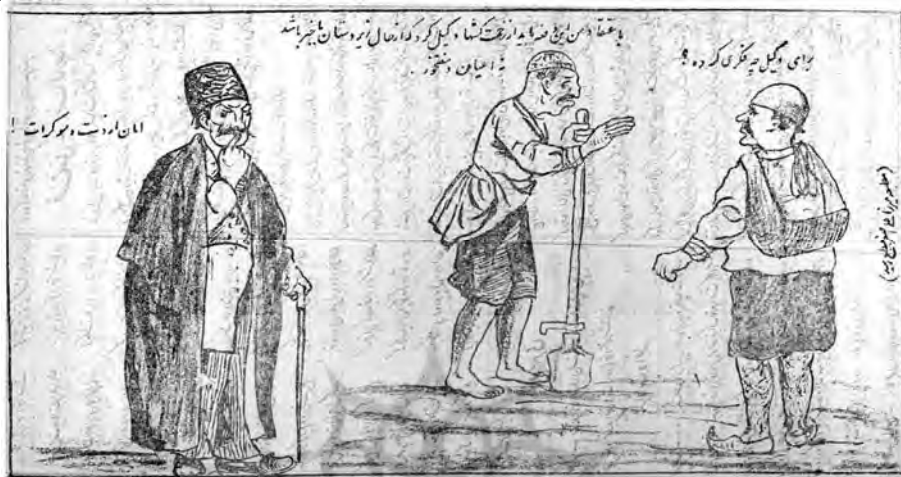 برای وکیل چه فکری کرده ؟
باعتقاد من این دفعه باید از زحمت کشها وکیل کرد که از حال زیردستان باخبر باشد
نه اعیان و مفتخور .
امان از دست دموکرات !
(مطبعه میرزا علی اصغر بطبع رسید)